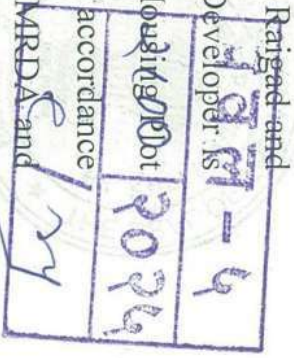 Raigad and
Developer is
ousing Plot
accordance
MRDA and
पवल - ५
२०२५